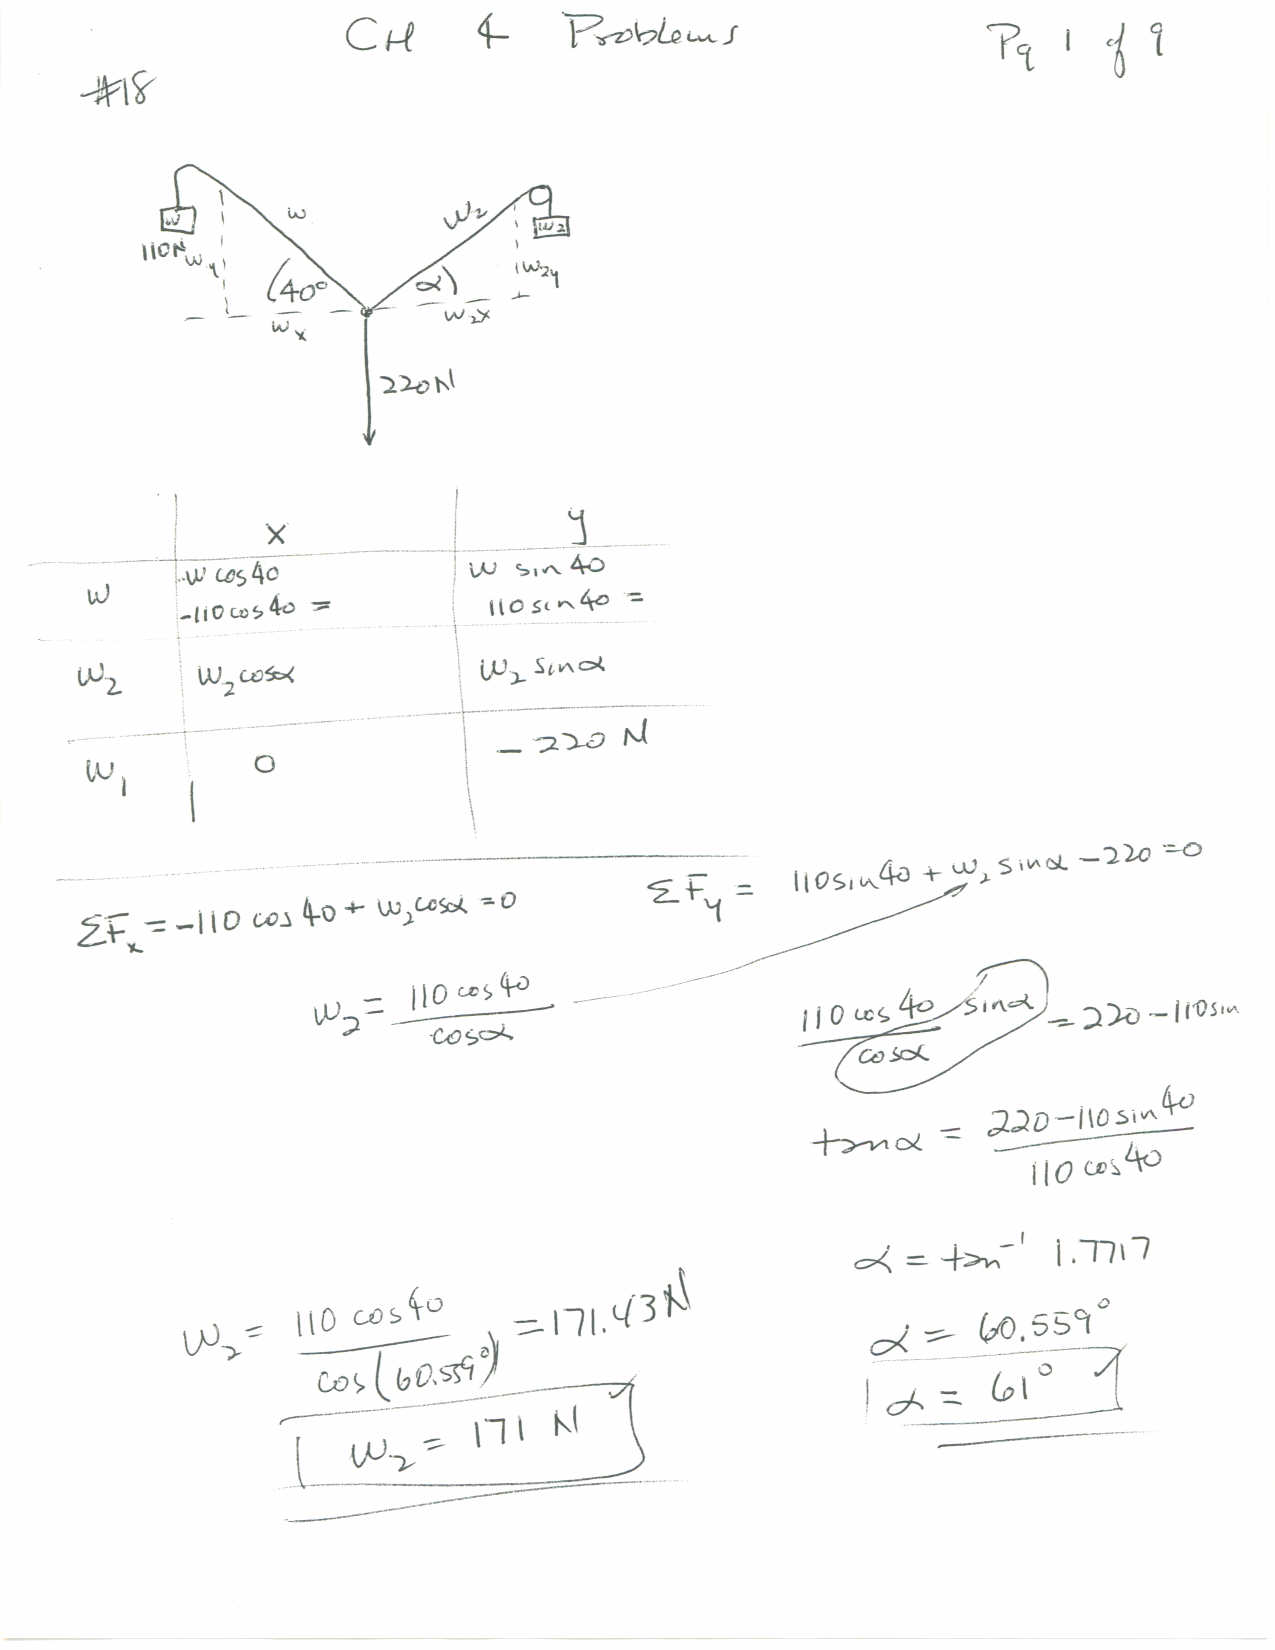 CH 4 Problems Pg 1 of 9
#18
w
110N
w
w2
w2
wy
(40°
α)
w2y
wx
w2x
220N
x y
w -w cos40 w sin 40
-110cos40 = 110sin40 =
w2 w2cosα w2 sinα
w1 0 -220 N
ΣFx = -110 cos 40 + w2cosα = 0 ΣFy = 110sin40 + w2 sinα - 220 = 0
w2 = 110 cos40 / cosα
110 cos 40 / cosα sinα = 220 - 110sin
tanα = 220-110sin40 / 110 cos40
α = tan⁻¹ 1.7717
w2 = 110 cos40 / cos(60.559°) = 171.43N
α = 60.559°
α = 61°
w2 = 171 N